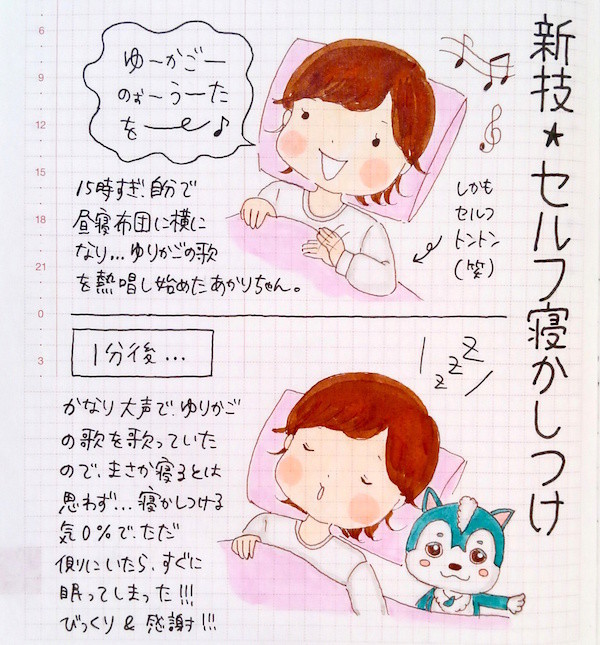 新技★セルフ寝かしつけ
ゆーかごー
のぉーうーた
を〜♪
15時すぎ、自分で
昼寝布団に横に
なり…ゆりかごの歌
を熱唱し始めたあかりちゃん。
しかも
セルフ
トントン
(笑)
1分後…
zzz
かなり大声で、ゆりかご
の歌を歌っていた
ので、まさか寝るとは
思わず…寝かしつける
気0%で、ただ
側にいたら、すぐに
眠ってしまった!!!
びっくり&感謝!!!
6
9
12
15
18
21
0
3